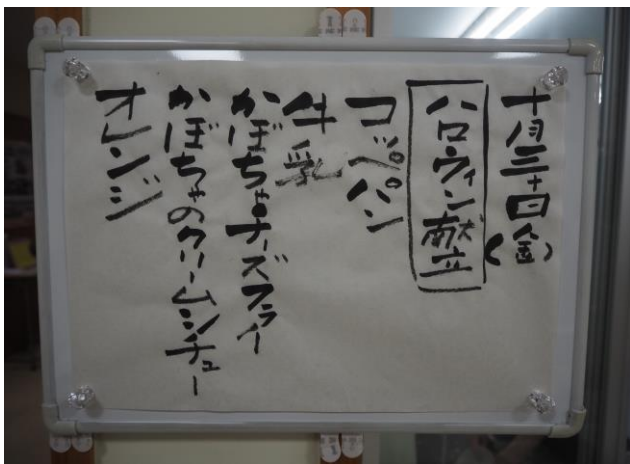 十月三十日(金)
ハロウィン献立
コッペパン
牛乳
かぼちゃチーズフライ
かぼちゃのクリームシチュー
オレンジ